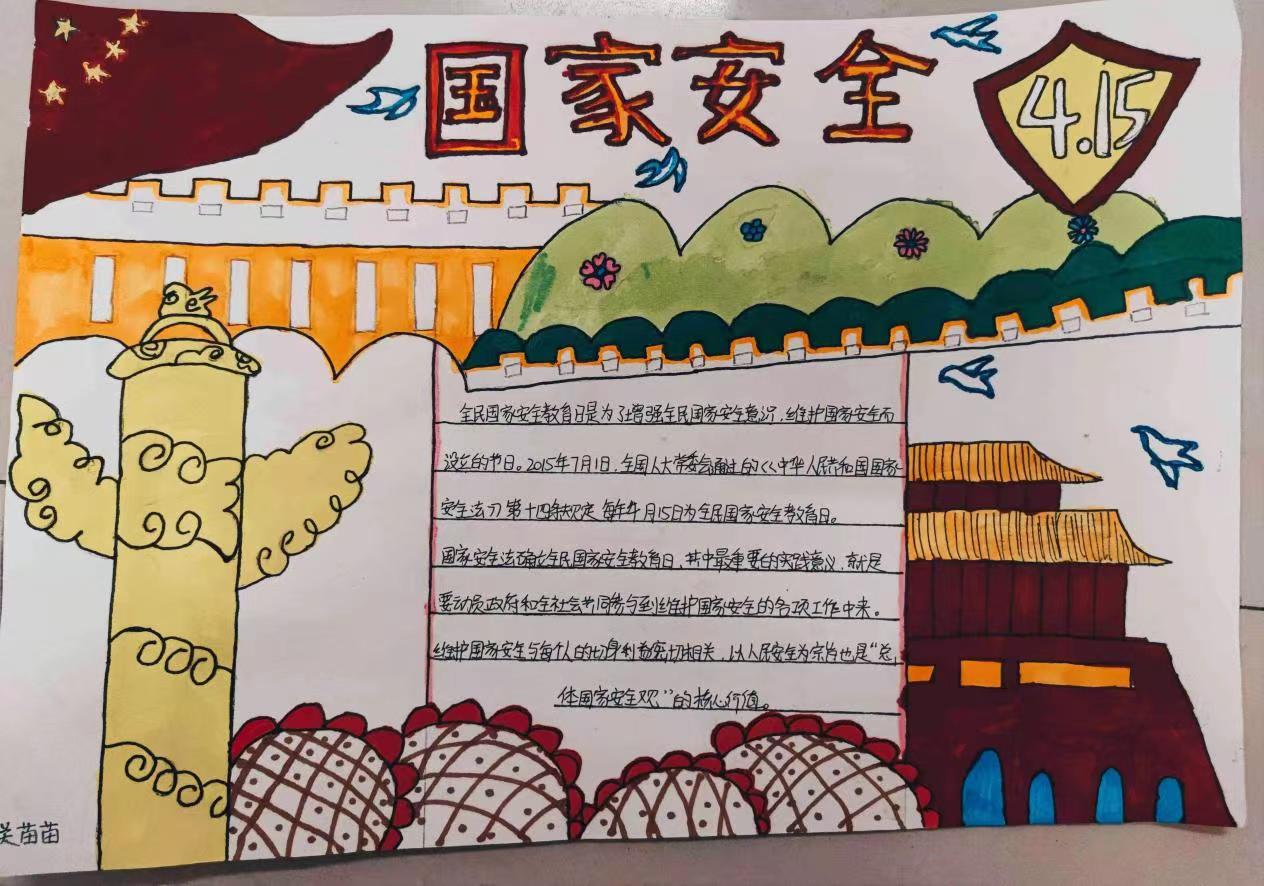 国家安全
4.15
全民国家安全教育日是为了增强全民国家安全意识，维护国家安全而
设立的节日。2015年7月1日，全国人大常委会通过的《中华人民共和国国家
安全法》第十四条规定 每年4月15日为全民国家安全教育日。
国家安全法确立全民国家安全教育日，其中最重要的实践意义，就是
要动员政府和全社会共同参与到维护国家安全的各项工作中来。
维护国家安全与每个人的切身利益密切相关，以人民安全为宗旨也是“总
体国家安全观”的核心价值。
苗苗